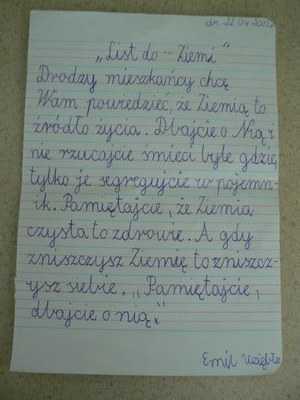 dn. 22.04.2002
„List do - Ziemi"
Drodzy mieszkańcy chcę
Wam powiedzieć, że Ziemia to
źródło życia. Dbajcie o Nią i
nie rzucajcie śmieci byle gdzie,
tylko je segregujcie w pojemn-
ik. Pamiętajcie, że Ziemia
czysta to zdrowie. A gdy
zniszczysz Ziemię to zniszcz-
ysz siebie. „Pamiętajcie,
dbajcie o nią."
Emil